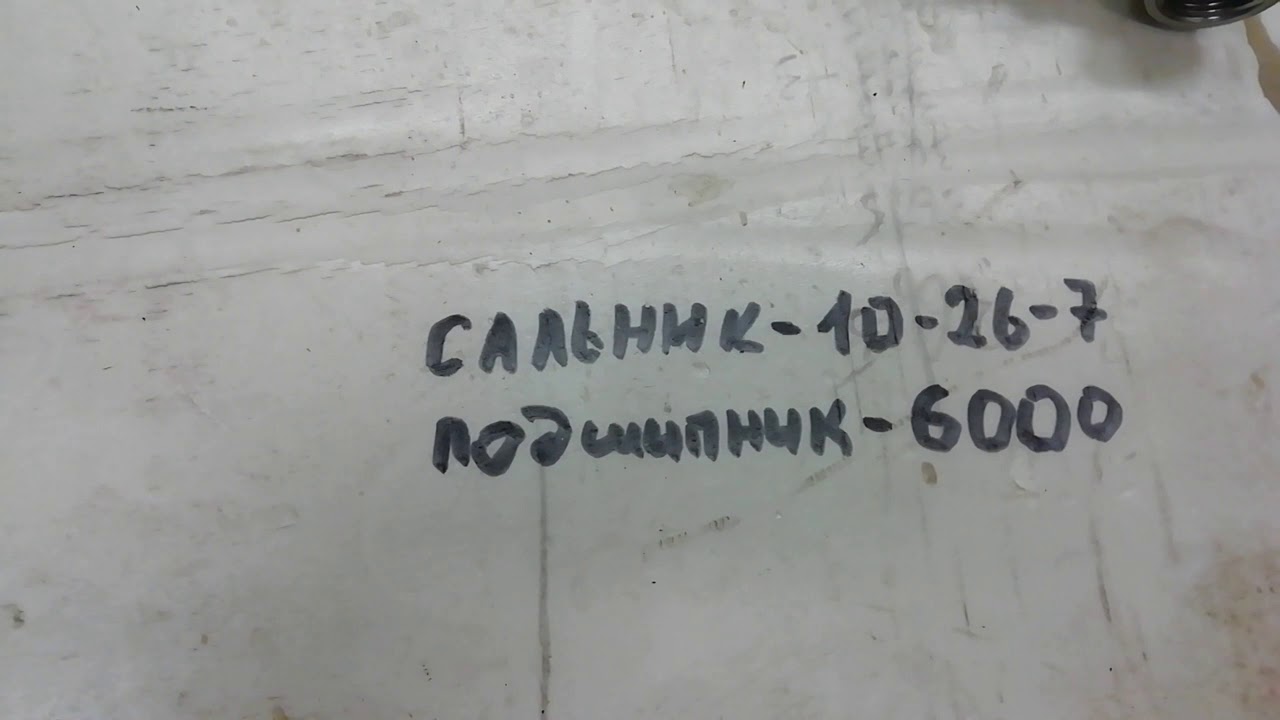 САЛЬНИК-10-26-7
ПОДШИПНИК-6000